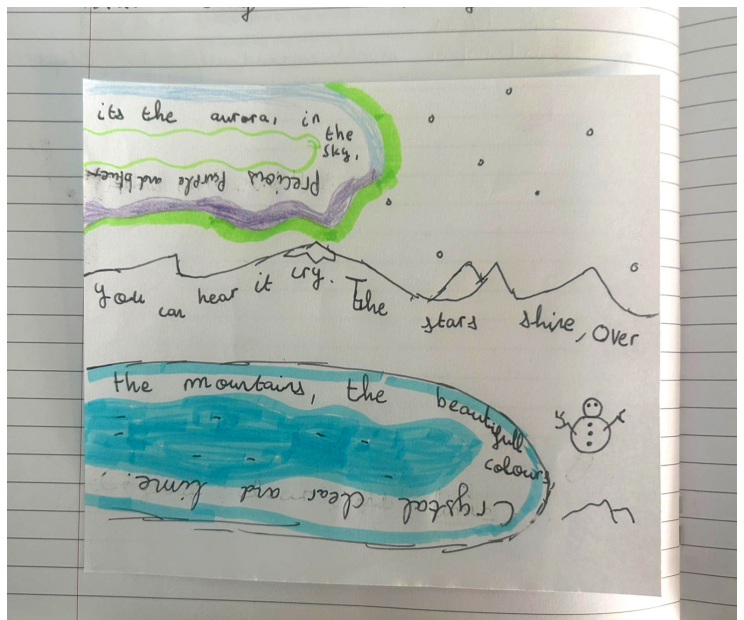 its the aurora, in
the
sky,
precious purple and blues
you can hear it cry. The
stars shine, over
the mountains, the
beautifull
colours,
Crystal clear and lime.